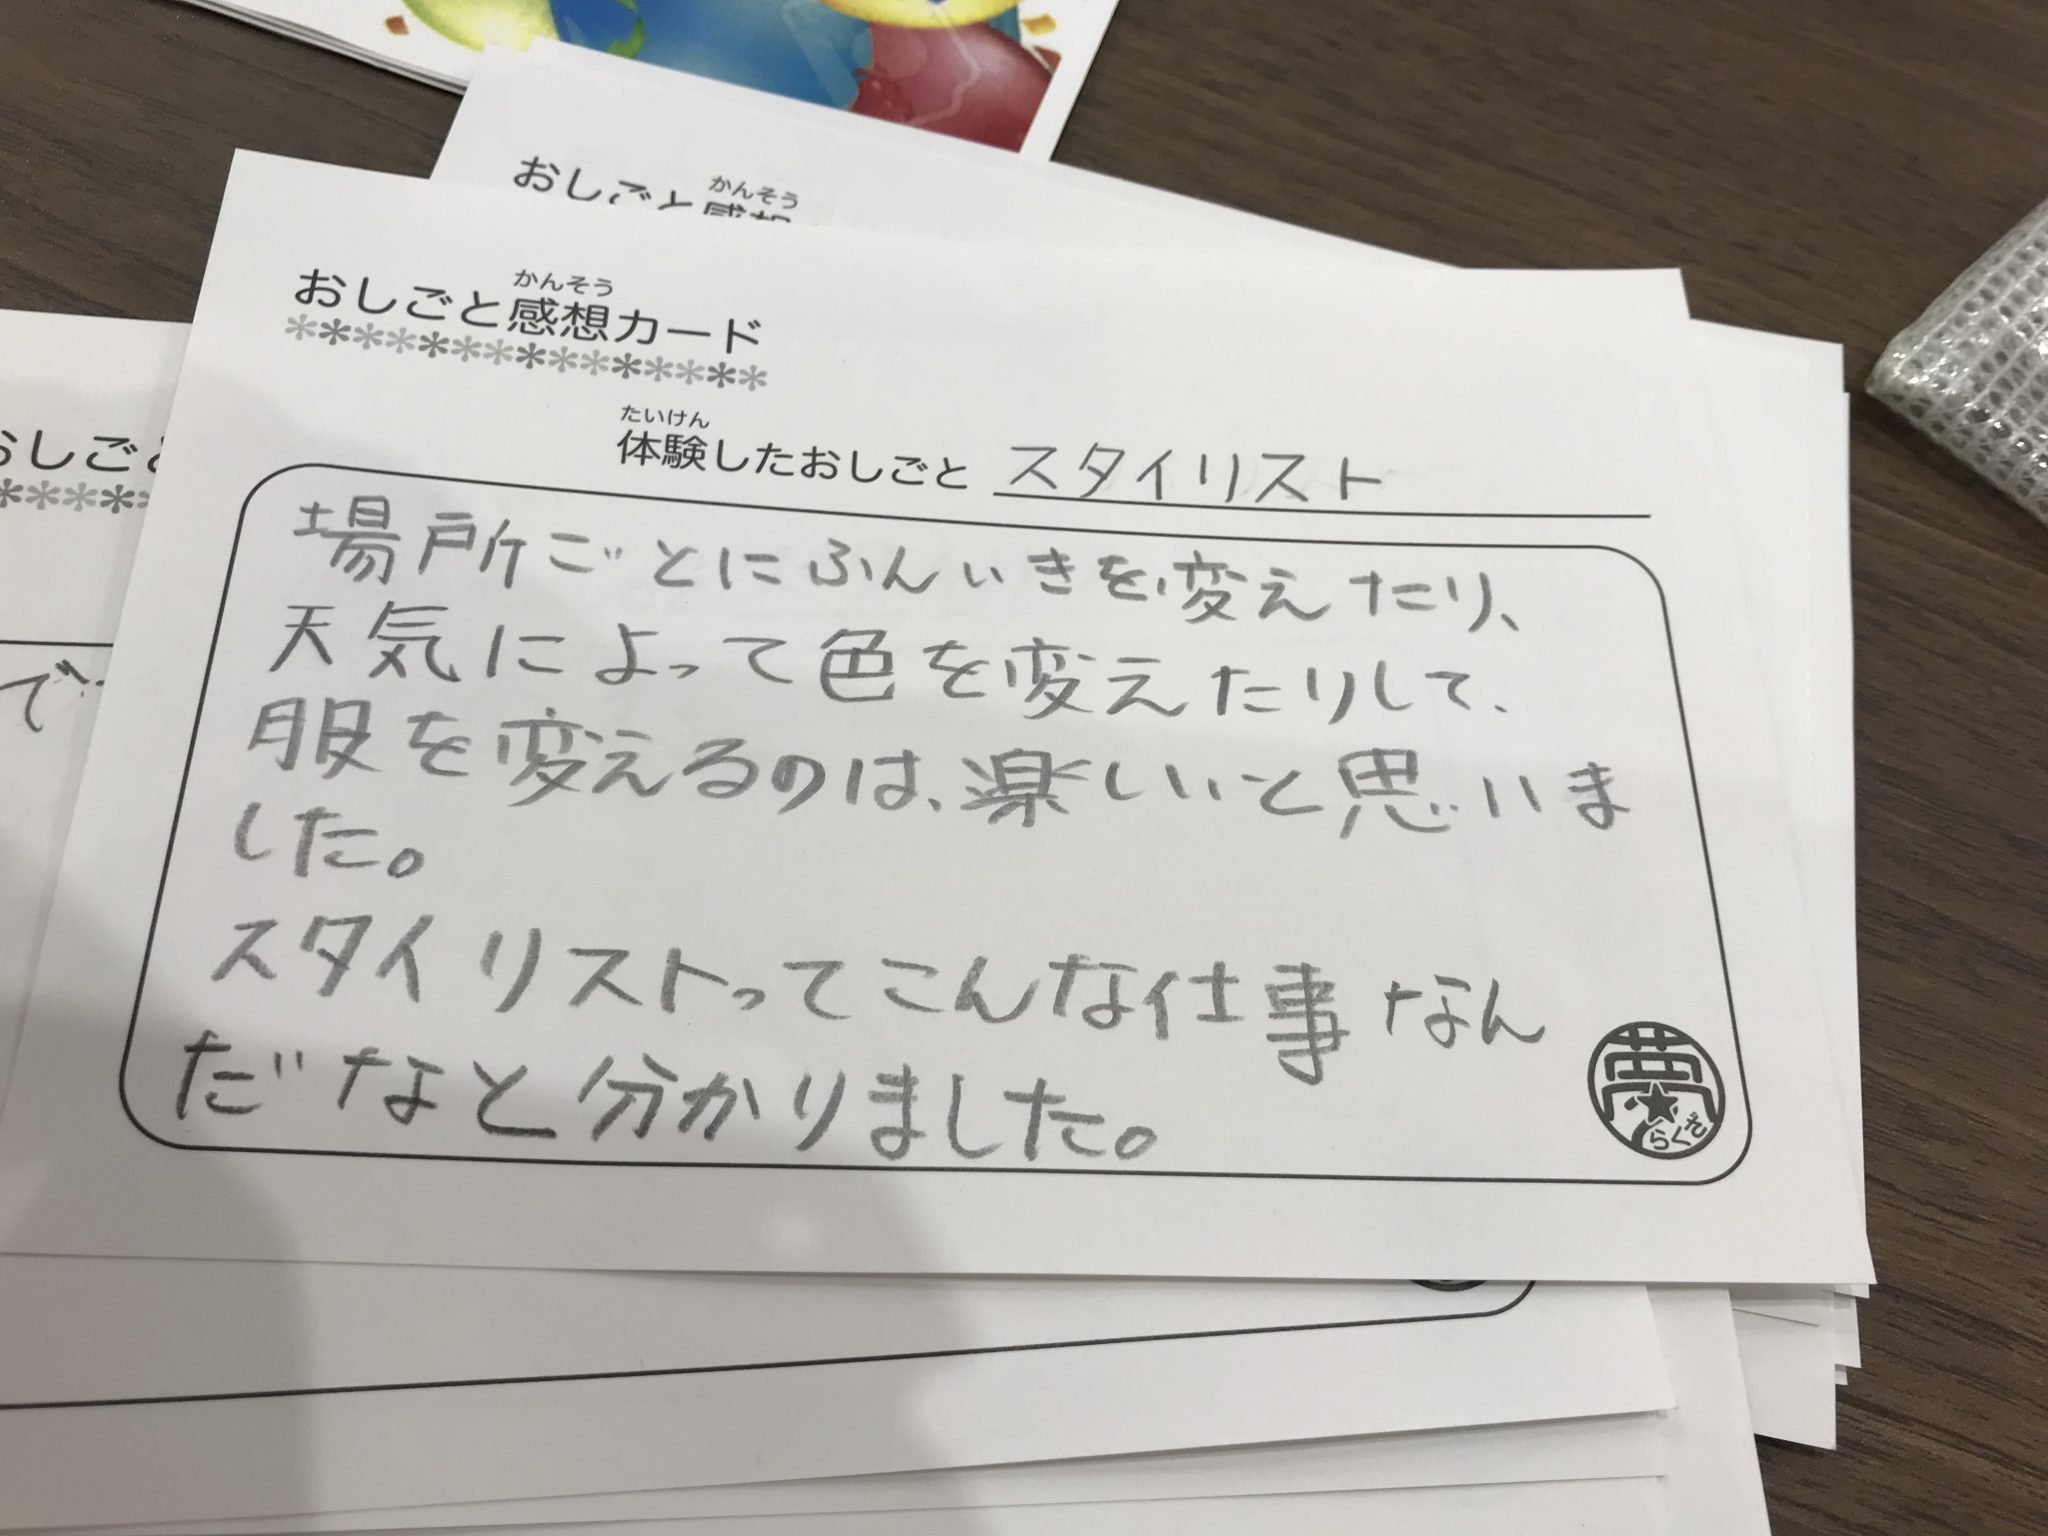 かんそう
おしごと感想
かんそう
おしごと感想カード
**************
おしごと
たいけん
体験したおしごと スタイリスト
場所ごとにふんいきを変えたり、
天気によって色を変えたりして、
服を変えるのは、楽しいと思いま
した。
スタイリストってこんな仕事なん
だなと分かりました。
夢
らくざ
で